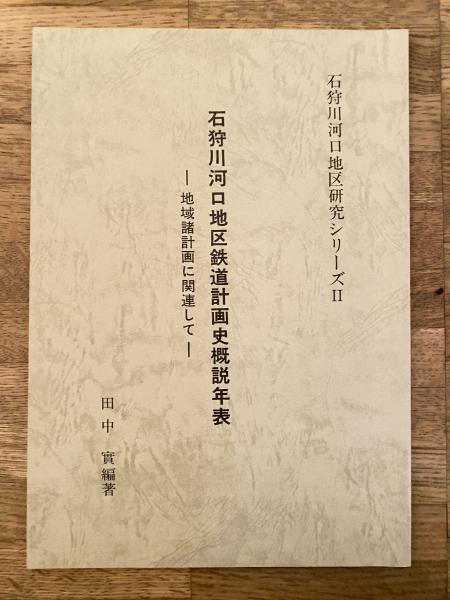 石狩川河口地区研究シリーズⅡ
石狩川河口地区鉄道計画史概説年表
―地域諸計画に関連して―
田中 實編著